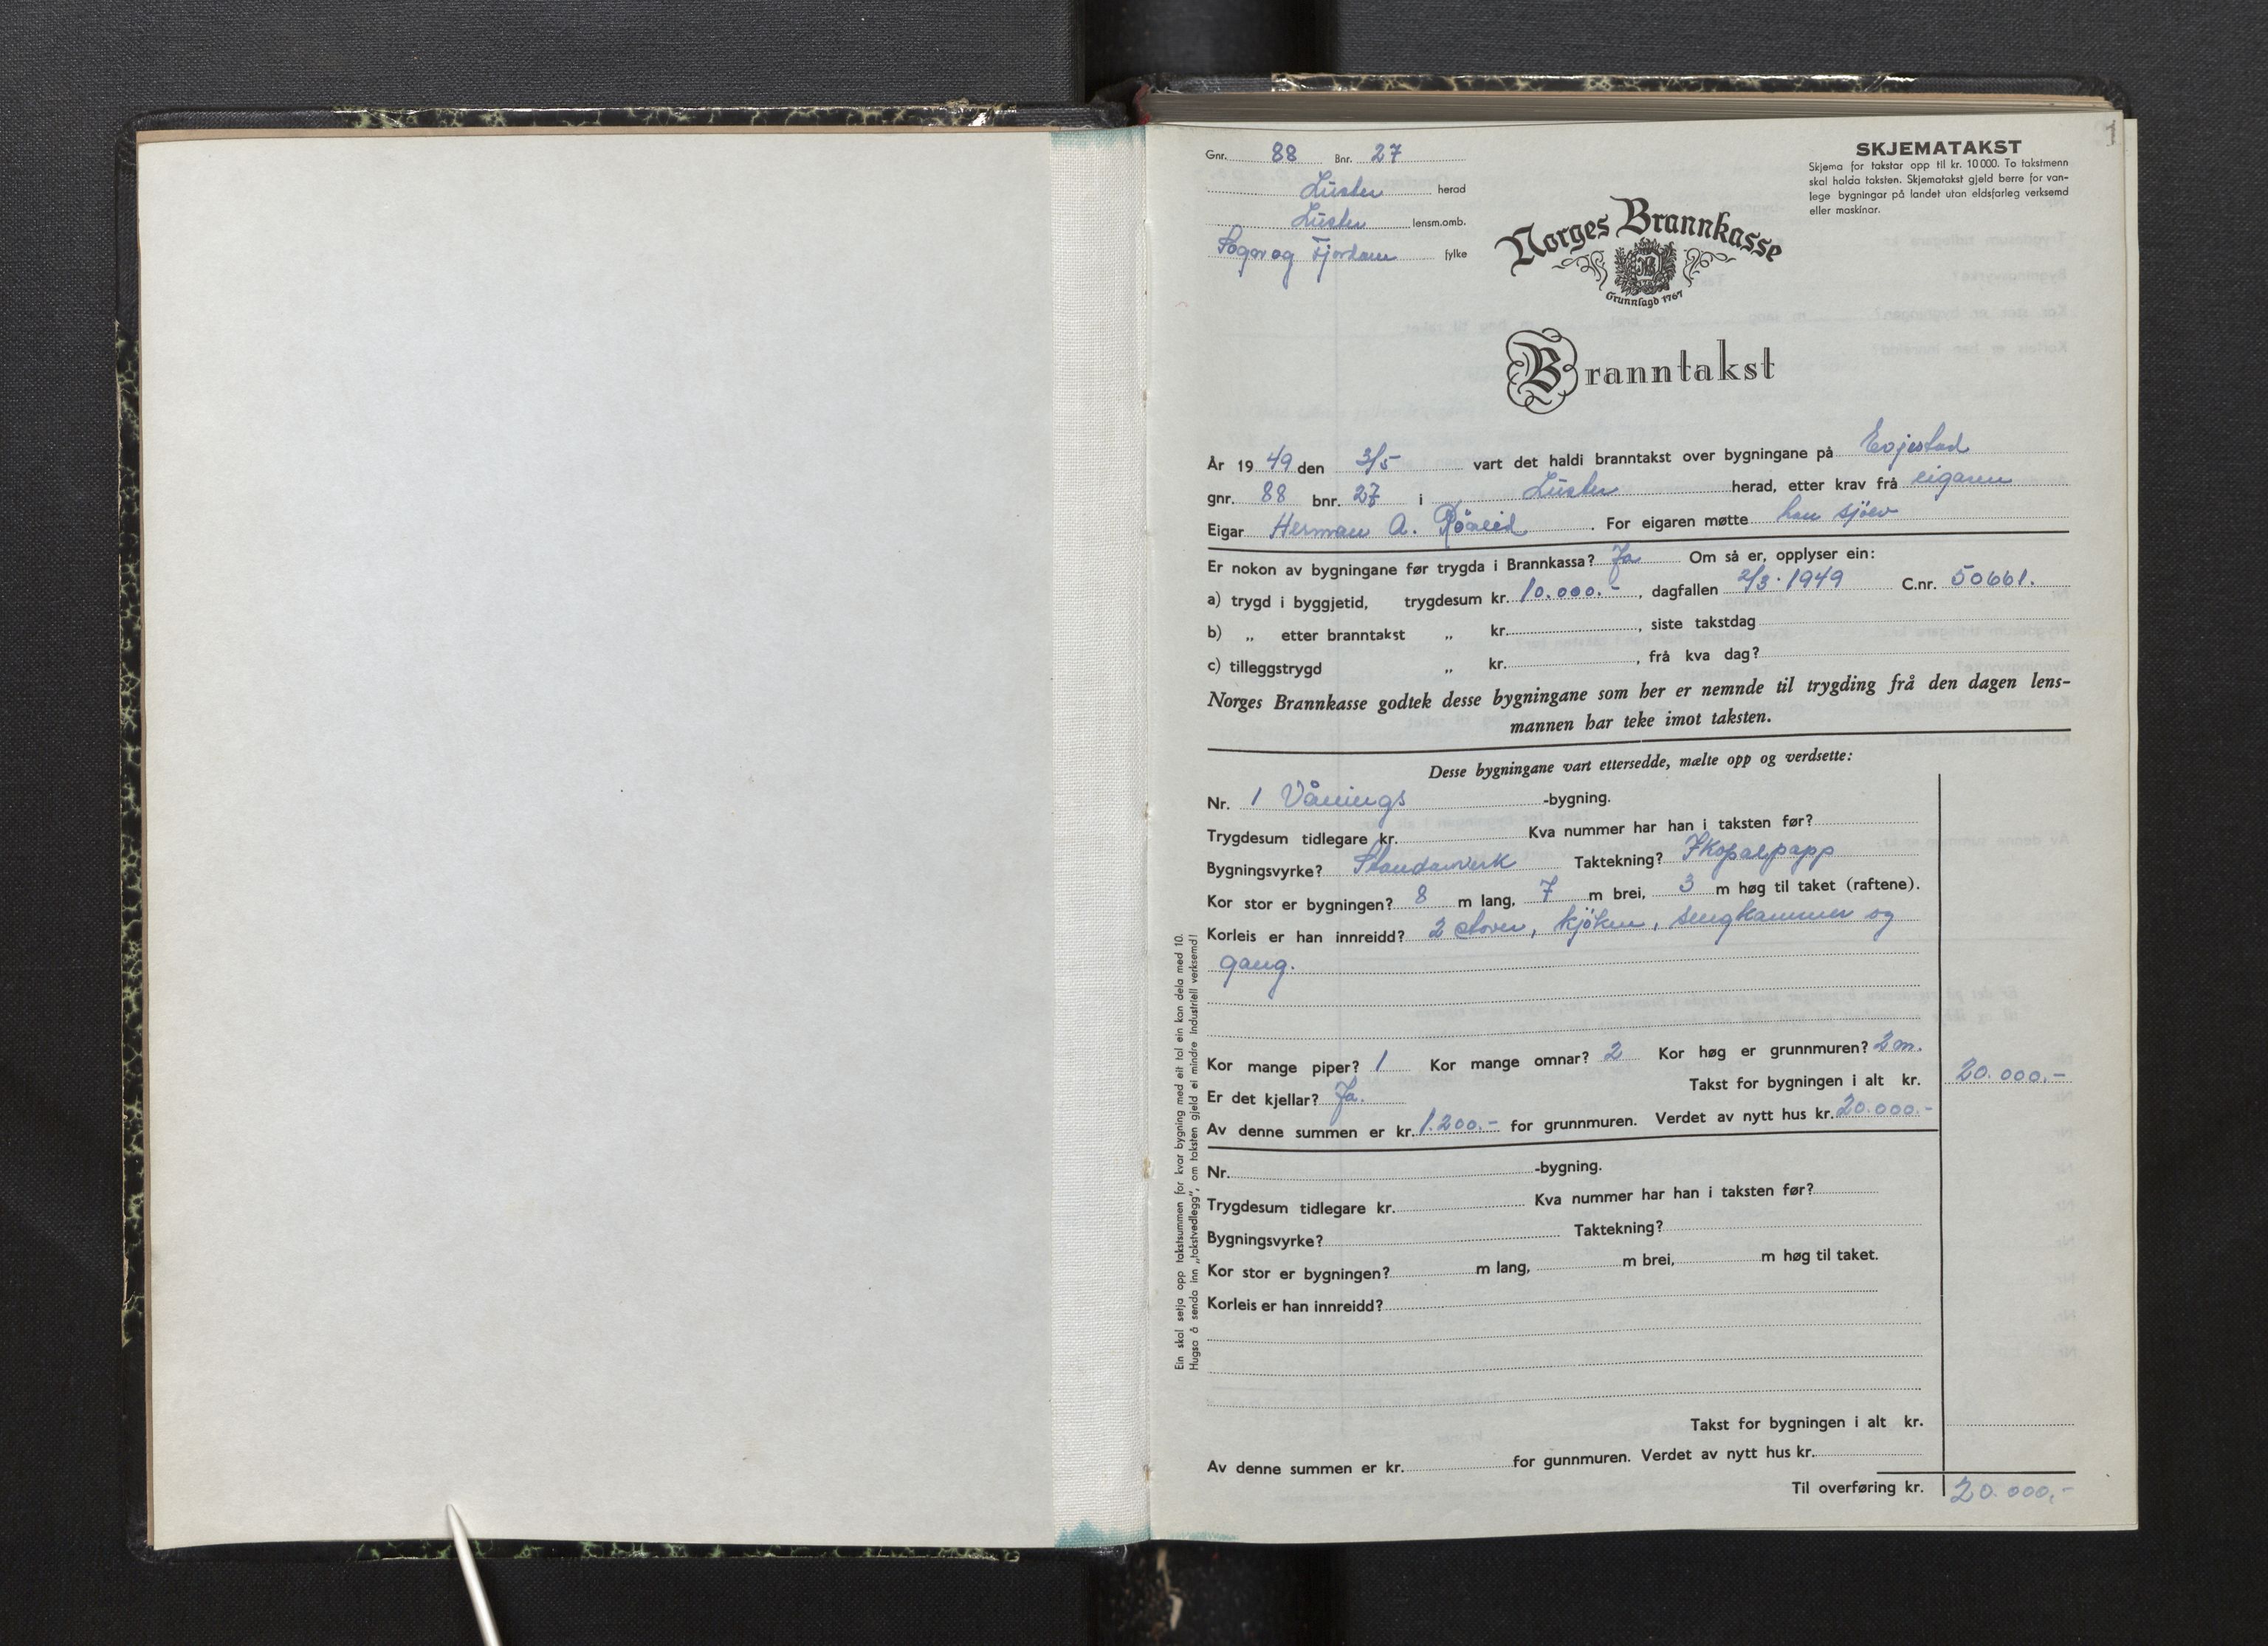 1
Gnr. 88 Bnr. 27
Luster herad
Luster lensm.omb.
Sogn og Fjordane fylke
SKJEMATAKST
Skjema for takstar opp til kr. 10 000. To takstmenn
skal halda taksten. Skjematakst gjeld berre for van-
lege bygningar på landet utan eldsfarleg verksemd
eller maskinar.
Norges Brannkasse
Grunnlagd 1767
Branntakst
År 19 49 den 3/5 vart det haldi branntakst over bygningane på Evjestad
gnr. 88 bnr. 27 i Luster herad, etter krav frå eigaren
Eigar Herman A. For eigaren møtte han sjölv
Er nokon av bygningane før trygda i Brannkassa? Ja Om så er, opplyser ein:
a) trygd i byggjetid, trygdesum kr. 10.000.-, dagfallen 2/3.1949 C.nr. 50661.
b) „ etter branntakst „ kr. , siste takstdag
c) tilleggstrygd „ kr. , frå kva dag?
Norges Brannkasse godtek desse bygningane som her er nemnde til trygding frå den dagen lens-
mannen har teke imot taksten.
Desse bygningane vart ettersedde, mælte opp og verdsette:
Nr. 1 Vånings -bygning.
Trygdesum tidlegare kr. Kva nummer har han i taksten før?
Bygningsvyrke? Standarverk Taktekning? papp
Kor stor er bygningen? 8 m lang, 7 m brei, 3 m høg til taket (raftene).
Korleis er han innreidd? 2 stover, kjöken, sengkammer og
gang.
Kor mange piper? 1 Kor mange omnar? 2 Kor høg er grunnmuren? 2 m.
Er det kjellar? Ja. Takst for bygningen i alt kr. 20.000.-
Av denne summen er kr. 1.200.- for grunnmuren. Verdet av nytt hus kr. 20.000.-
Nr. -bygning.
Trygdesum tidlegare kr. Kva nummer har han i taksten før?
Bygningsvyrke? Taktekning?
Kor stor er bygningen? m lang, m brei, m høg til taket.
Korleis er han innreidd?
Takst for bygningen i alt kr.
Av denne summen er kr. for gunnmuren. Verdet av nytt hus kr.
Til overføring kr. 20.000,-
Ein skal setja opp takstsummen for kvar bygning med eit tal ein kan dela med 10.
Hugsa å senda inn „takstvedlegg", om taksten gjeld ei mindre industriell verksemd!